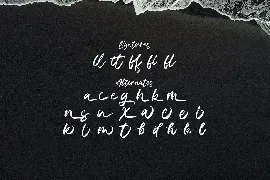 Ligatures
cl ct ff fi fl
Alternates
a c e g h k m
n s u x a o e i
k l m t b d h k l